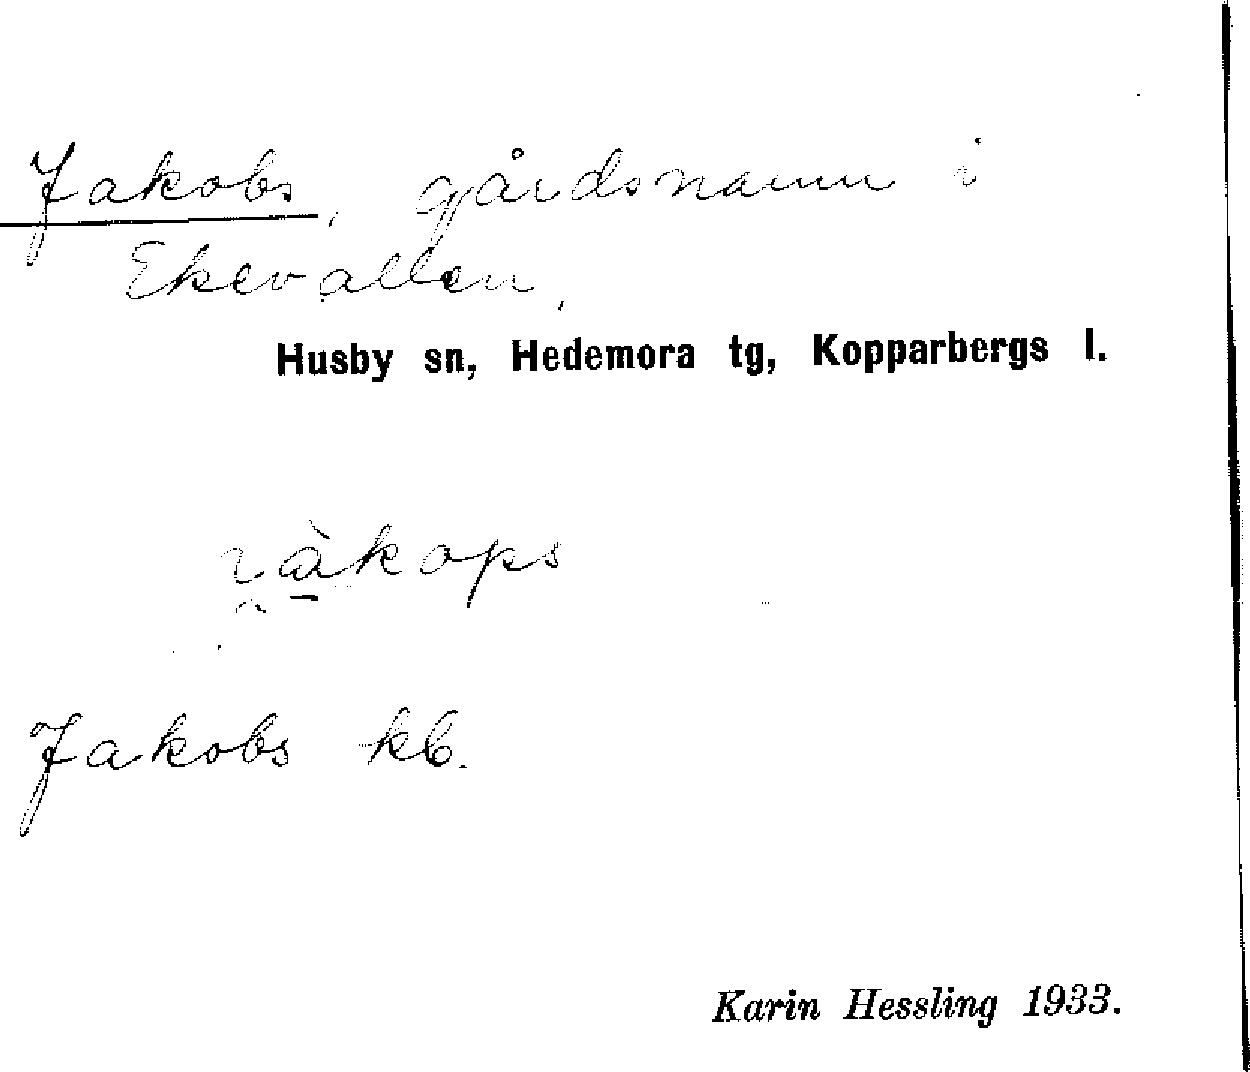 Jakobs, gårdsnamn i
Ekevallen,
Husby sn, Hedemora tg, Kopparbergs l.
i̯à̱kops
Jakobs kb.
Karin Hessling 1933.